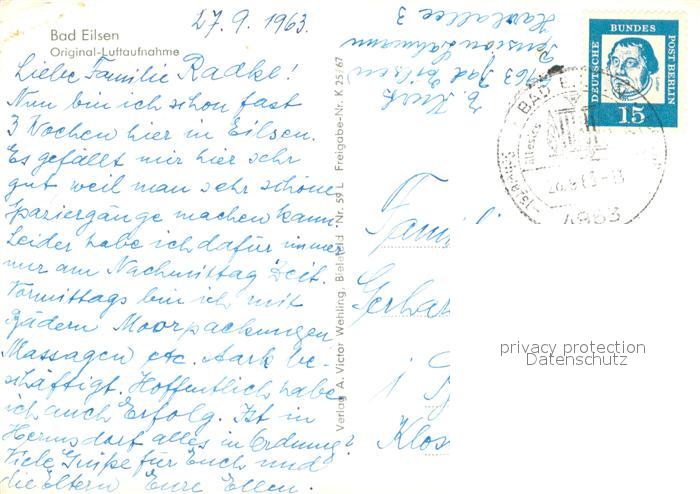 27.9.1963.
Bad Eilsen
Original-Luftaufnahme
Liebe Familie Radke!
Nun bin ich schon fast
3 Wochen hier in Eilsen.
Es gefällt mir hier sehr
gut, weil man sehr schöne
Spaziergänge machen kann.
Leider habe ich dafür immer
nur am Nachmittag Zeit.
Vormittags bin ich mit
Bädern Moorpackungen
Massagen etc. stark be-
schäftigt. Hoffentlich habe
ich auch Erfolg. Ist in
Hermsdorf alles in Ordnung?
Viele Grüße für Euch und
die Eltern Eure Ellen.
Verlag A. Victor Wehling, Bielefeld Nr. 59 L Freigabe-Nr. K 25/67
3063 Bad Eilsen
DEUTSCHE BUNDES
POST BERLIN
15
BAD EILSEN
4963
Famil
Gerhar
Klos
privacy protection
Datenschutz